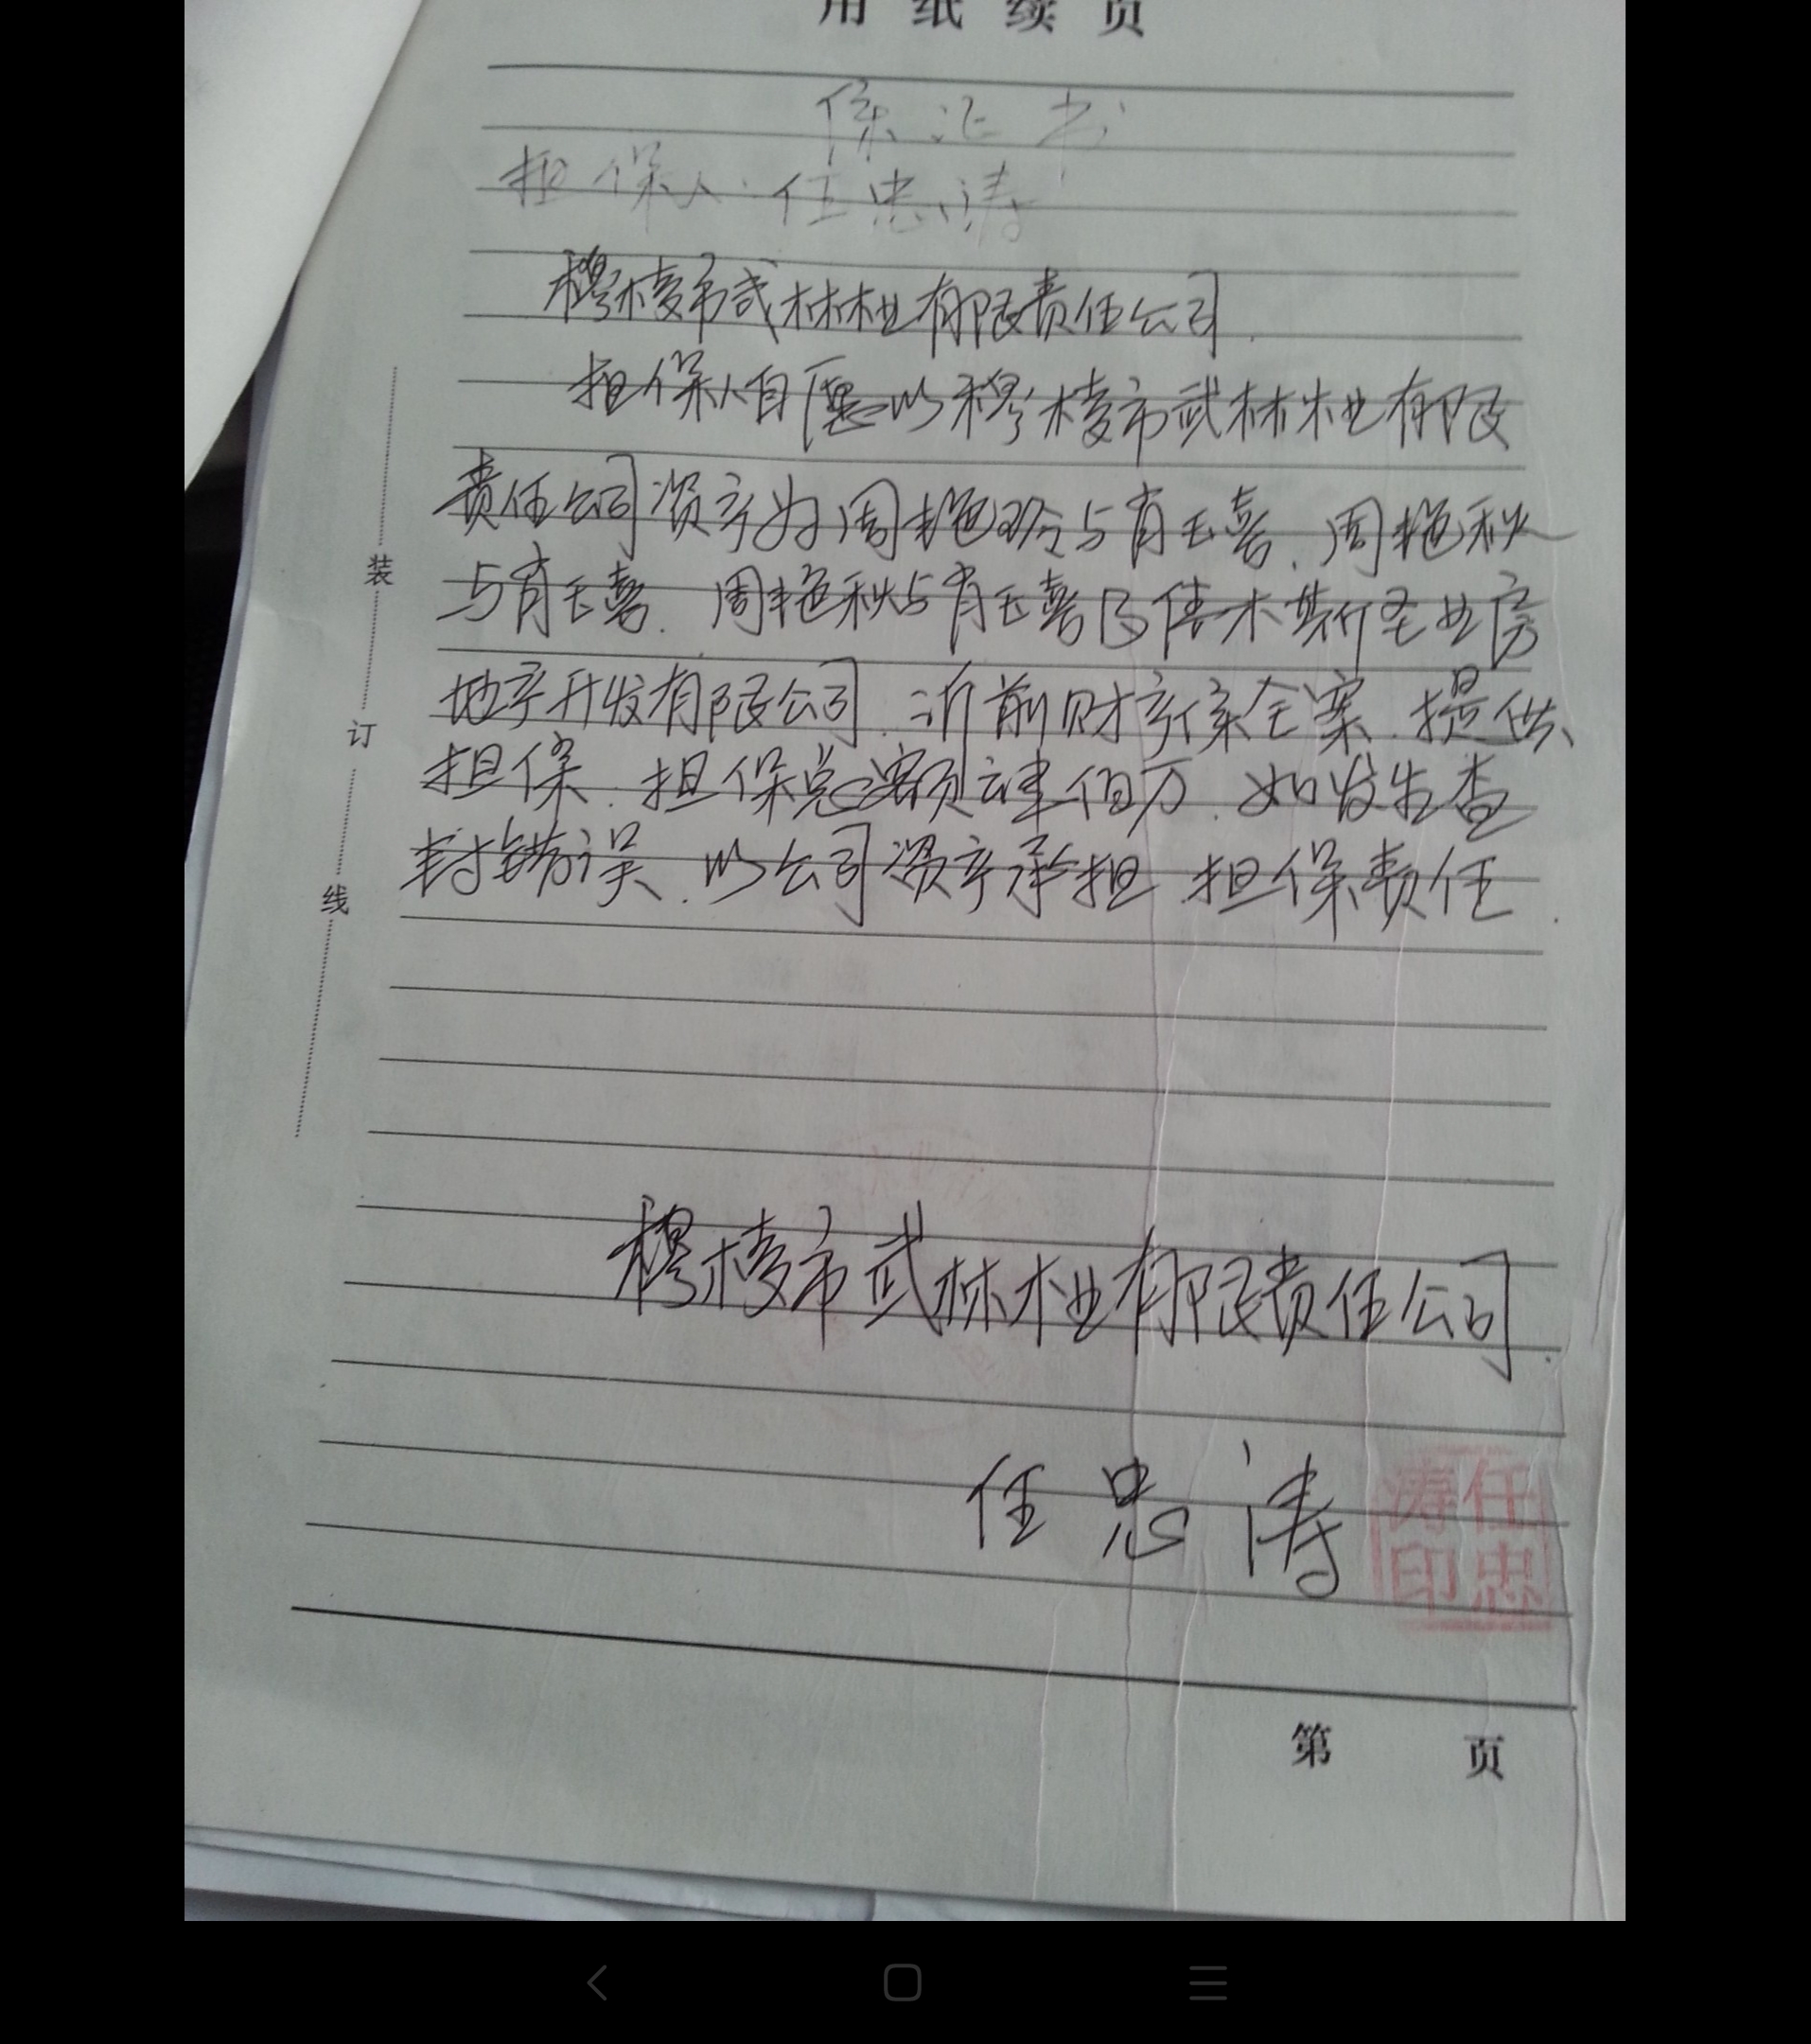 用纸续页
保证书
担保人:任忠涛
穆棱市武林木业有限责任公司.
担保人自愿以穆棱市武林木业有限
责任公司资产为周艳玲与肖玉喜、周艳秋
与肖玉喜、周艳秋与肖玉喜及佳木斯圣业房
地产开发有限公司、诉前财产保全案、提供
担保、担保总额肆佰万、如发生查
封错误、以公司资产承担担保责任.
装
订
线
穆棱市武林木业有限责任公司.
任忠涛
任忠涛印
第 页